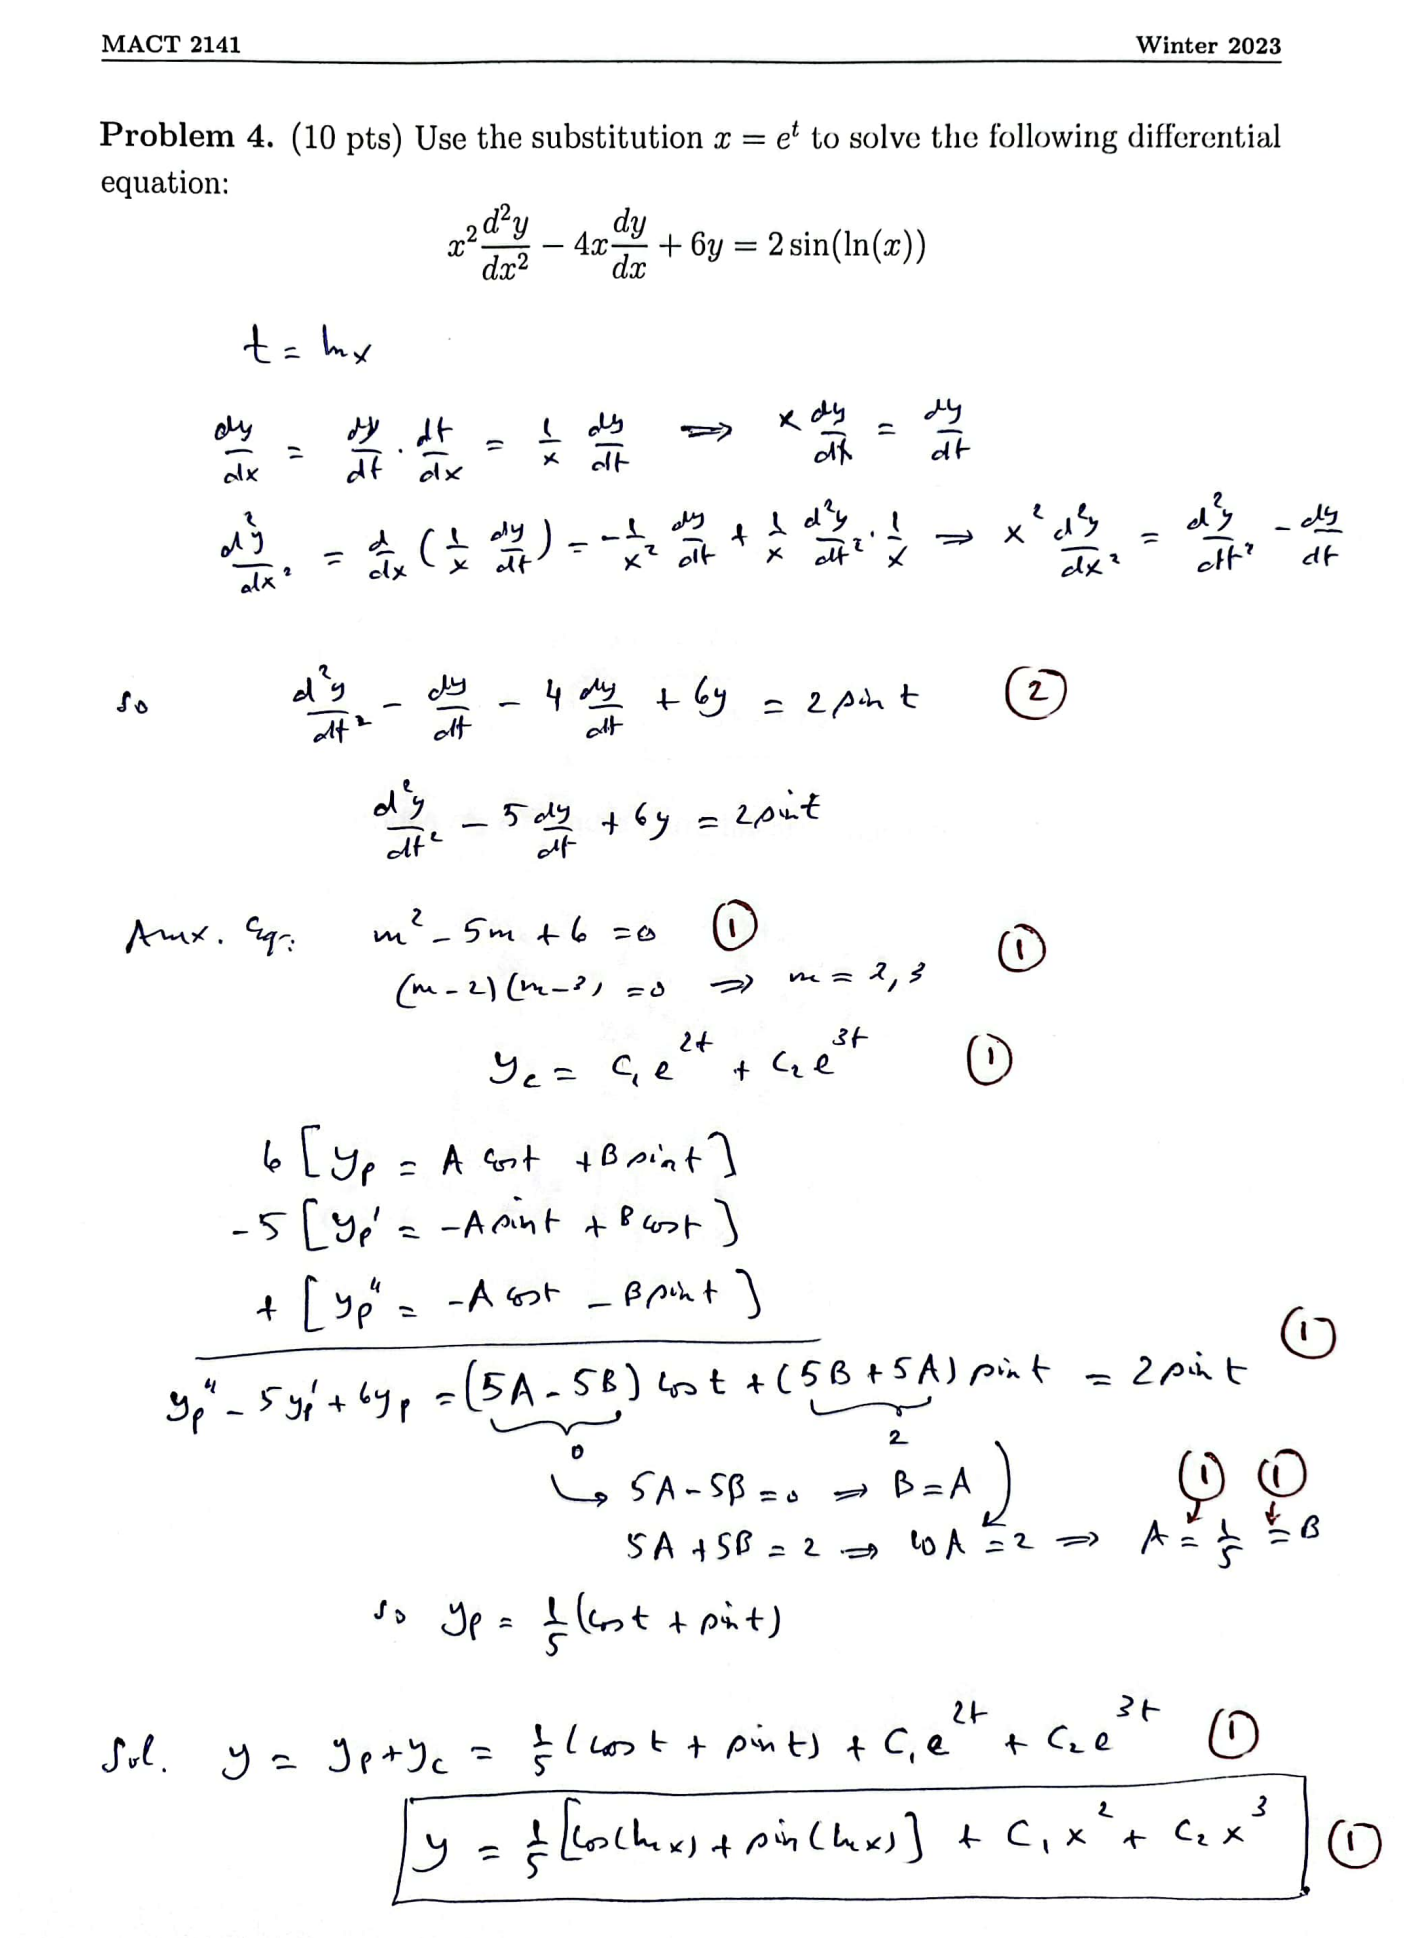 MACT 2141 Winter 2023
Problem 4. (10 pts) Use the substitution x = e^t to solve the following differential
equation:
x^2 d^2y/dx^2 − 4x dy/dx + 6y = 2 sin(ln(x))
t = ln x
dy/dx = dy/dt · dt/dx = 1/x dy/dt ⇒ x dy/dx = dy/dt
d^2y/dx^2 = d/dx (1/x dy/dt) = -1/x^2 dy/dt + 1/x d^2y/dt^2 · 1/x ⇒ x^2 d^2y/dx^2 = d^2y/dt^2 - dy/dt
so d^2y/dt^2 - dy/dt - 4 dy/dt + 6y = 2 sin t ②
d^2y/dt^2 - 5 dy/dt + 6y = 2 sin t
Aux. Eq: m^2 - 5m + 6 = 0 ①
(m-2)(m-3) = 0 ⇒ m = 2, 3 ①
y_c = c_1 e^{2t} + c_2 e^{3t} ①
6 [y_p = A cos t + B sin t]
-5 [y_p' = -A sin t + B cos t]
+ [y_p'' = -A cos t - B sin t]
y_p'' - 5y_p' + 6y_p = (5A - 5B) cos t + (5B + 5A) sin t = 2 sin t ①
0 2
↳ 5A - 5B = 0 ⇒ B = A ① ①
5A + 5B = 2 ⇒ 10A = 2 ⇒ A = 1/5 = B
so y_p = 1/5 (cos t + sin t)
Sol. y = y_p + y_c = 1/5 (cos t + sin t) + C_1 e^{2t} + C_2 e^{3t} ①
y = 1/5 [cos(ln x) + sin(ln x)] + C_1 x^2 + C_2 x^3 ①